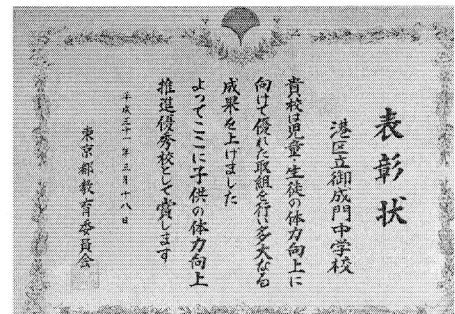 表彰状
港区立御成門中学校
貴校は児童・生徒の体力向上に
向けて優れた取組を行い多大なる
成果を上げました
よってここに子供の体力向上
推進優秀校として賞します
平成三十一年三月十八日
東京都教育委員会